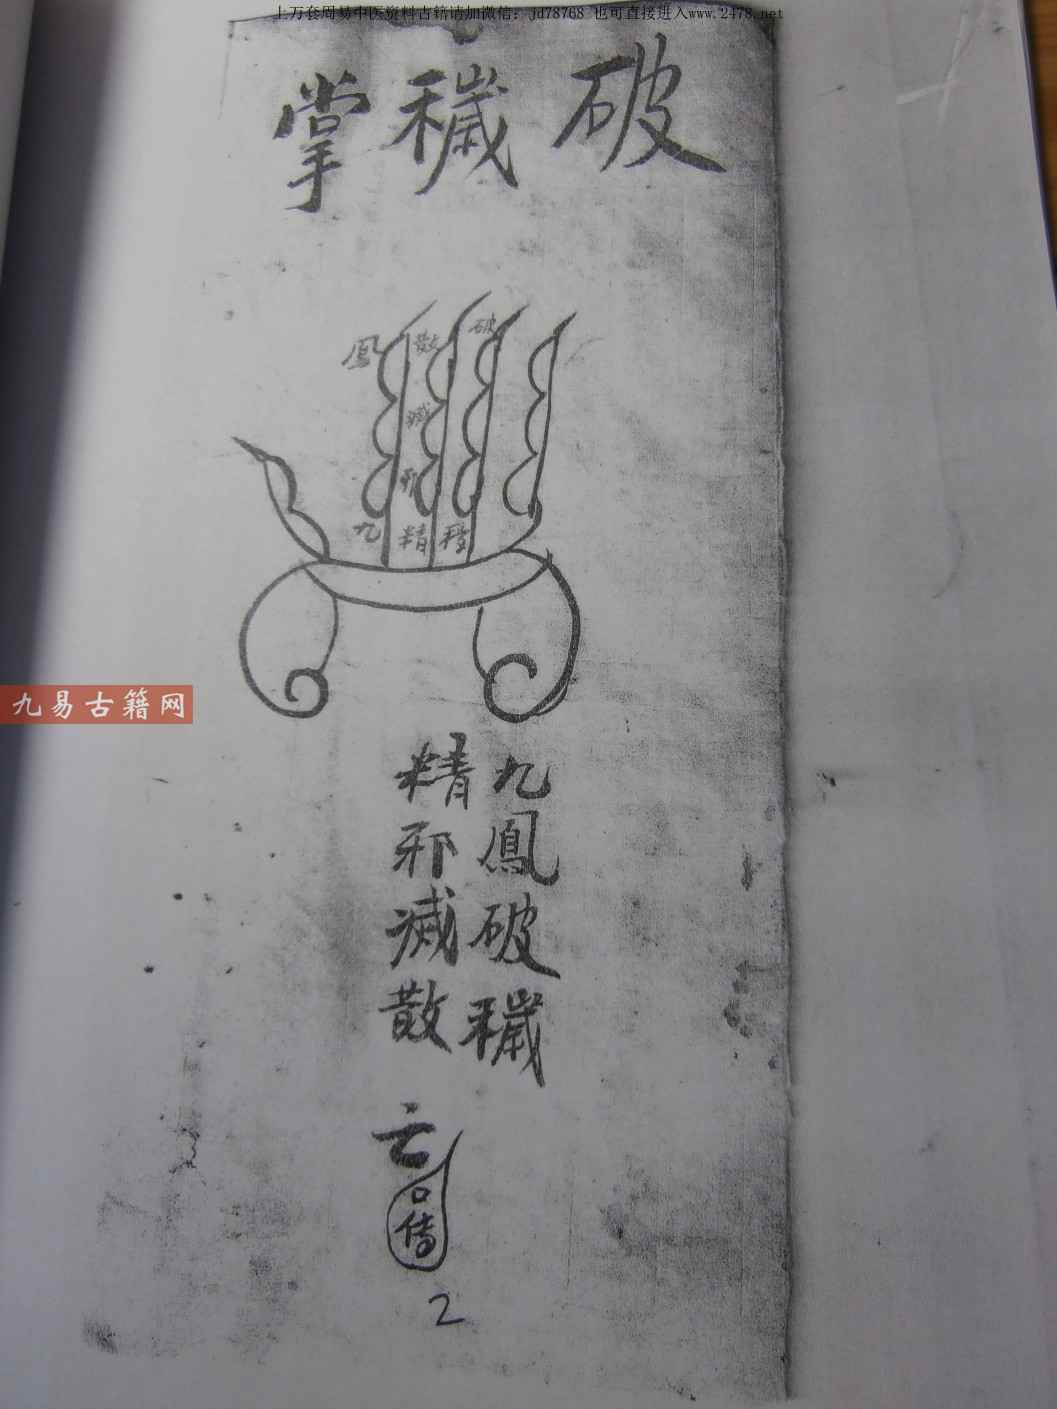 上万套周易中医资料古籍请加微信: jd78768 也可直接进入www.2478.net
破穢掌
鳳 散 破
滅
邪
九 精 穢
九易古籍网
九鳳破穢
精邪滅散
亡
口傳
2